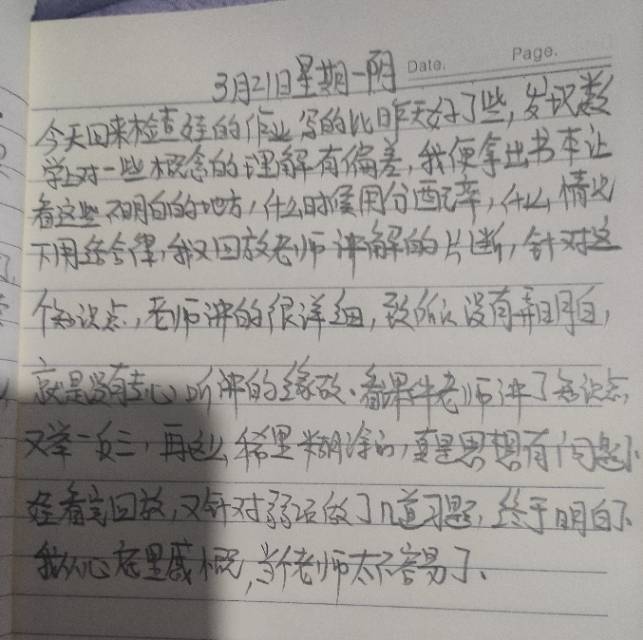 Date. Page.
3月21日星期一阴
今天回来检查娃的作业写的比昨天好了些,发现数
学上对一些概念的理解有偏差,我便拿出书本让
看这些不明白的地方,什么时候用分配率,什么情况
下用结合律,我又回放老师讲解的片断,针对这
个知识点,老师讲的很详细,致所以没有弄明白,
就是没有专心听讲的缘故、看课件老师讲了知识点,
又举一反三,再这么稀里糊涂的,真是思想有问题、
娃看完回放,又针对弱项做了几道习题,终于明白了
我从心底里感概,当个老师太不容易了、